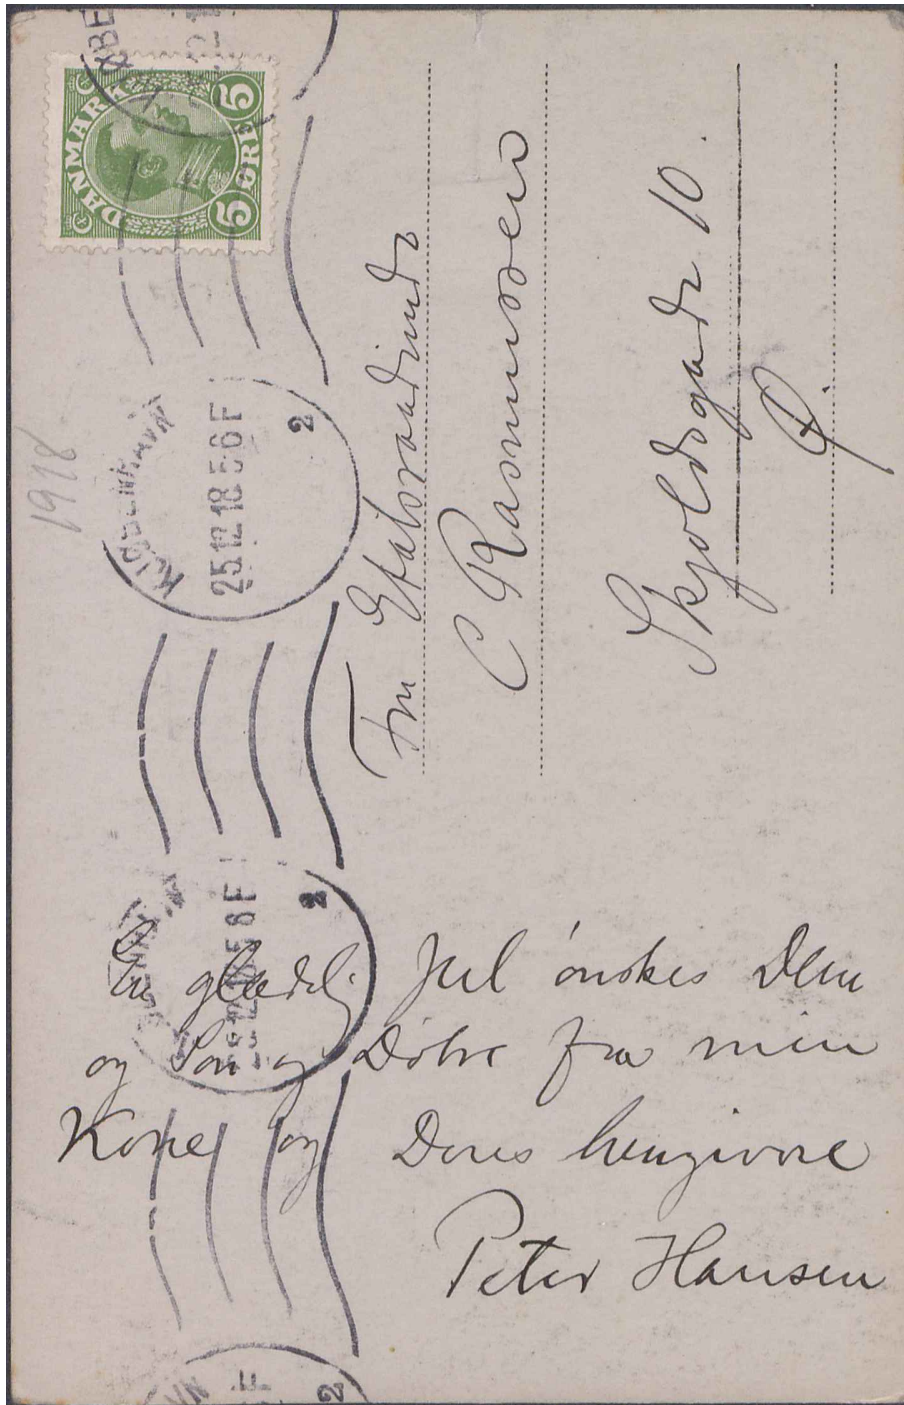 DANMARK
5 ØRE 5
KJØBENHAVN
25.12.18.5-6 F
2
1918
Fru Etatsraadinde
C Rasmussen
Skjoldsgade 10.
Ø.
KJØBENHAVN
25.12.18.5-6 F
2
En glædelig Jul ønskes Dem
og Søn og Døtre fra min
Kone og Deres hengivne
Peter Hansen
2